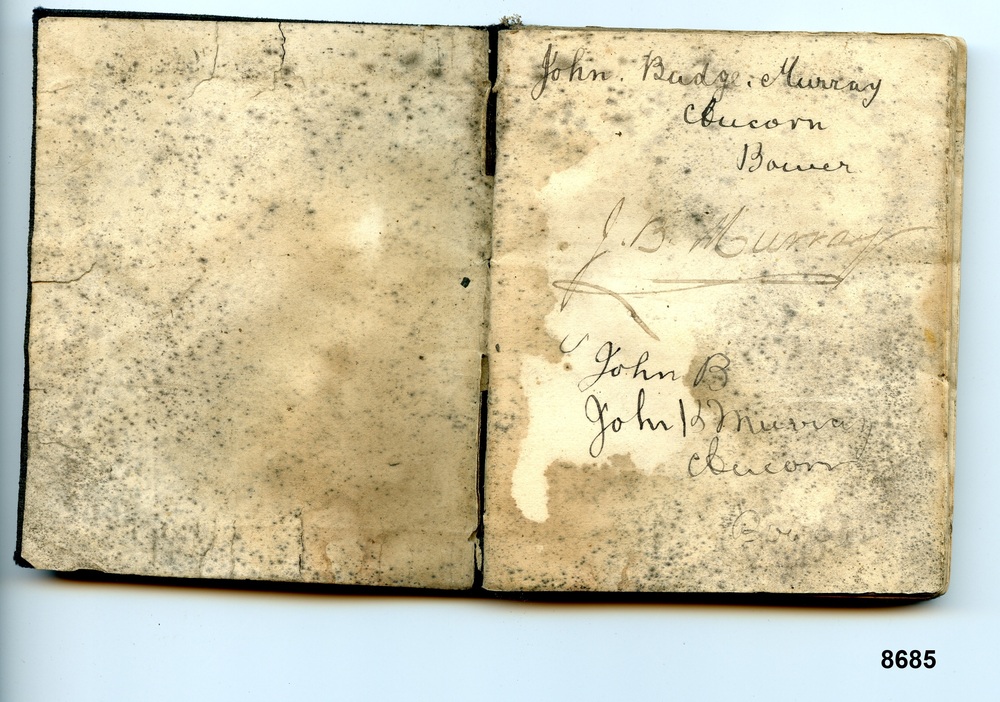 John. Budge. Murray
Aucorn
Bower
J. B. Murray
John B
John B Murray
Aucorn
Bo
8685